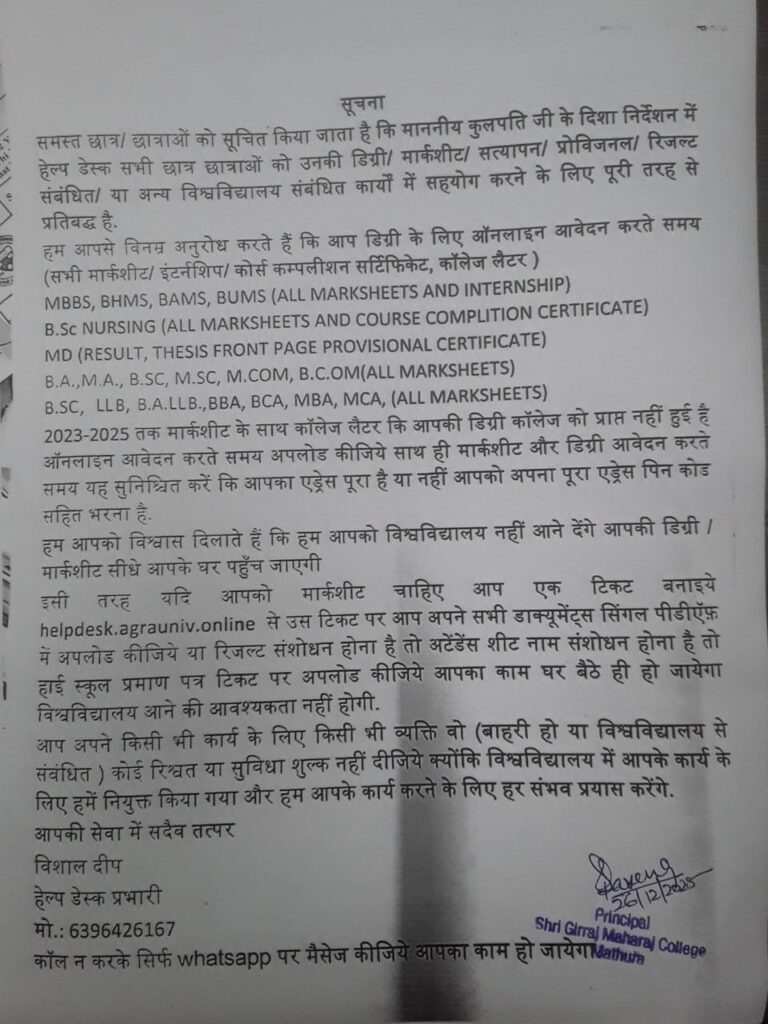 सूचना
समस्त छात्र/ छात्राओं को सूचित किया जाता है कि माननीय कुलपति जी के दिशा निर्देशन में
हेल्प डेस्क सभी छात्र छात्राओं को उनकी डिग्री/ मार्कशीट/ सत्यापन/ प्रोविजनल/ रिजल्ट
संबंधित/ या अन्य विश्वविद्यालय संबंधित कार्यों में सहयोग करने के लिए पूरी तरह से
प्रतिबद्ध है.
हम आपसे विनम्र अनुरोध करते हैं कि आप डिग्री के लिए ऑनलाइन आवेदन करते समय
(सभी मार्कशीट/ इंटर्नशिप/ कोर्स कम्पलीशन सर्टिफिकेट, कॉलेज लैटर )
MBBS, BHMS, BAMS, BUMS (ALL MARKSHEETS AND INTERNSHIP)
B.Sc NURSING (ALL MARKSHEETS AND COURSE COMPLITION CERTIFICATE)
MD (RESULT, THESIS FRONT PAGE PROVISIONAL CERTIFICATE)
B.A.,M.A., B.SC, M.SC, M.COM, B.C.OM(ALL MARKSHEETS)
B.SC, LLB, B.A.LLB.,BBA, BCA, MBA, MCA, (ALL MARKSHEETS)
2023-2025 तक मार्कशीट के साथ कॉलेज लैटर कि आपकी डिग्री कॉलेज को प्राप्त नहीं हुई है
ऑनलाइन आवेदन करते समय अपलोड कीजिये साथ ही मार्कशीट और डिग्री आवेदन करते
समय यह सुनिश्चित करें कि आपका एड्रेस पूरा है या नहीं आपको अपना पूरा एड्रेस पिन कोड
सहित भरना है.
हम आपको विश्वास दिलाते हैं कि हम आपको विश्वविद्यालय नहीं आने देंगे आपकी डिग्री /
मार्कशीट सीधे आपके घर पहुँच जाएगी
इसी तरह यदि आपको मार्कशीट चाहिए आप एक टिकट बनाइये
helpdesk.agrauniv.online से उस टिकट पर आप अपने सभी डाक्यूमेंट्स सिंगल पीडीऍफ़
में अपलोड कीजिये या रिजल्ट संशोधन होना है तो अटेंडेंस शीट नाम संशोधन होना है तो
हाई स्कूल प्रमाण पत्र टिकट पर अपलोड कीजिये आपका काम घर बैठे ही हो जायेगा
विश्वविद्यालय आने की आवश्यकता नहीं होगी.
आप अपने किसी भी कार्य के लिए किसी भी व्यक्ति वो (बाहरी हो या विश्वविद्यालय से
संबंधित ) कोई रिश्वत या सुविधा शुल्क नहीं दीजिये क्योंकि विश्वविद्यालय में आपके कार्य के
लिए हमें नियुक्त किया गया और हम आपके कार्य करने के लिए हर संभव प्रयास करेंगे.
आपकी सेवा में सदैव तत्पर
विशाल दीप
हेल्प डेस्क प्रभारी
मो.: 6396426167
कॉल न करके सिर्फ whatsapp पर मैसेज कीजिये आपका काम हो जायेगा
26/12/2025
Principal
Shri Girraj Maharaj College
Mathura